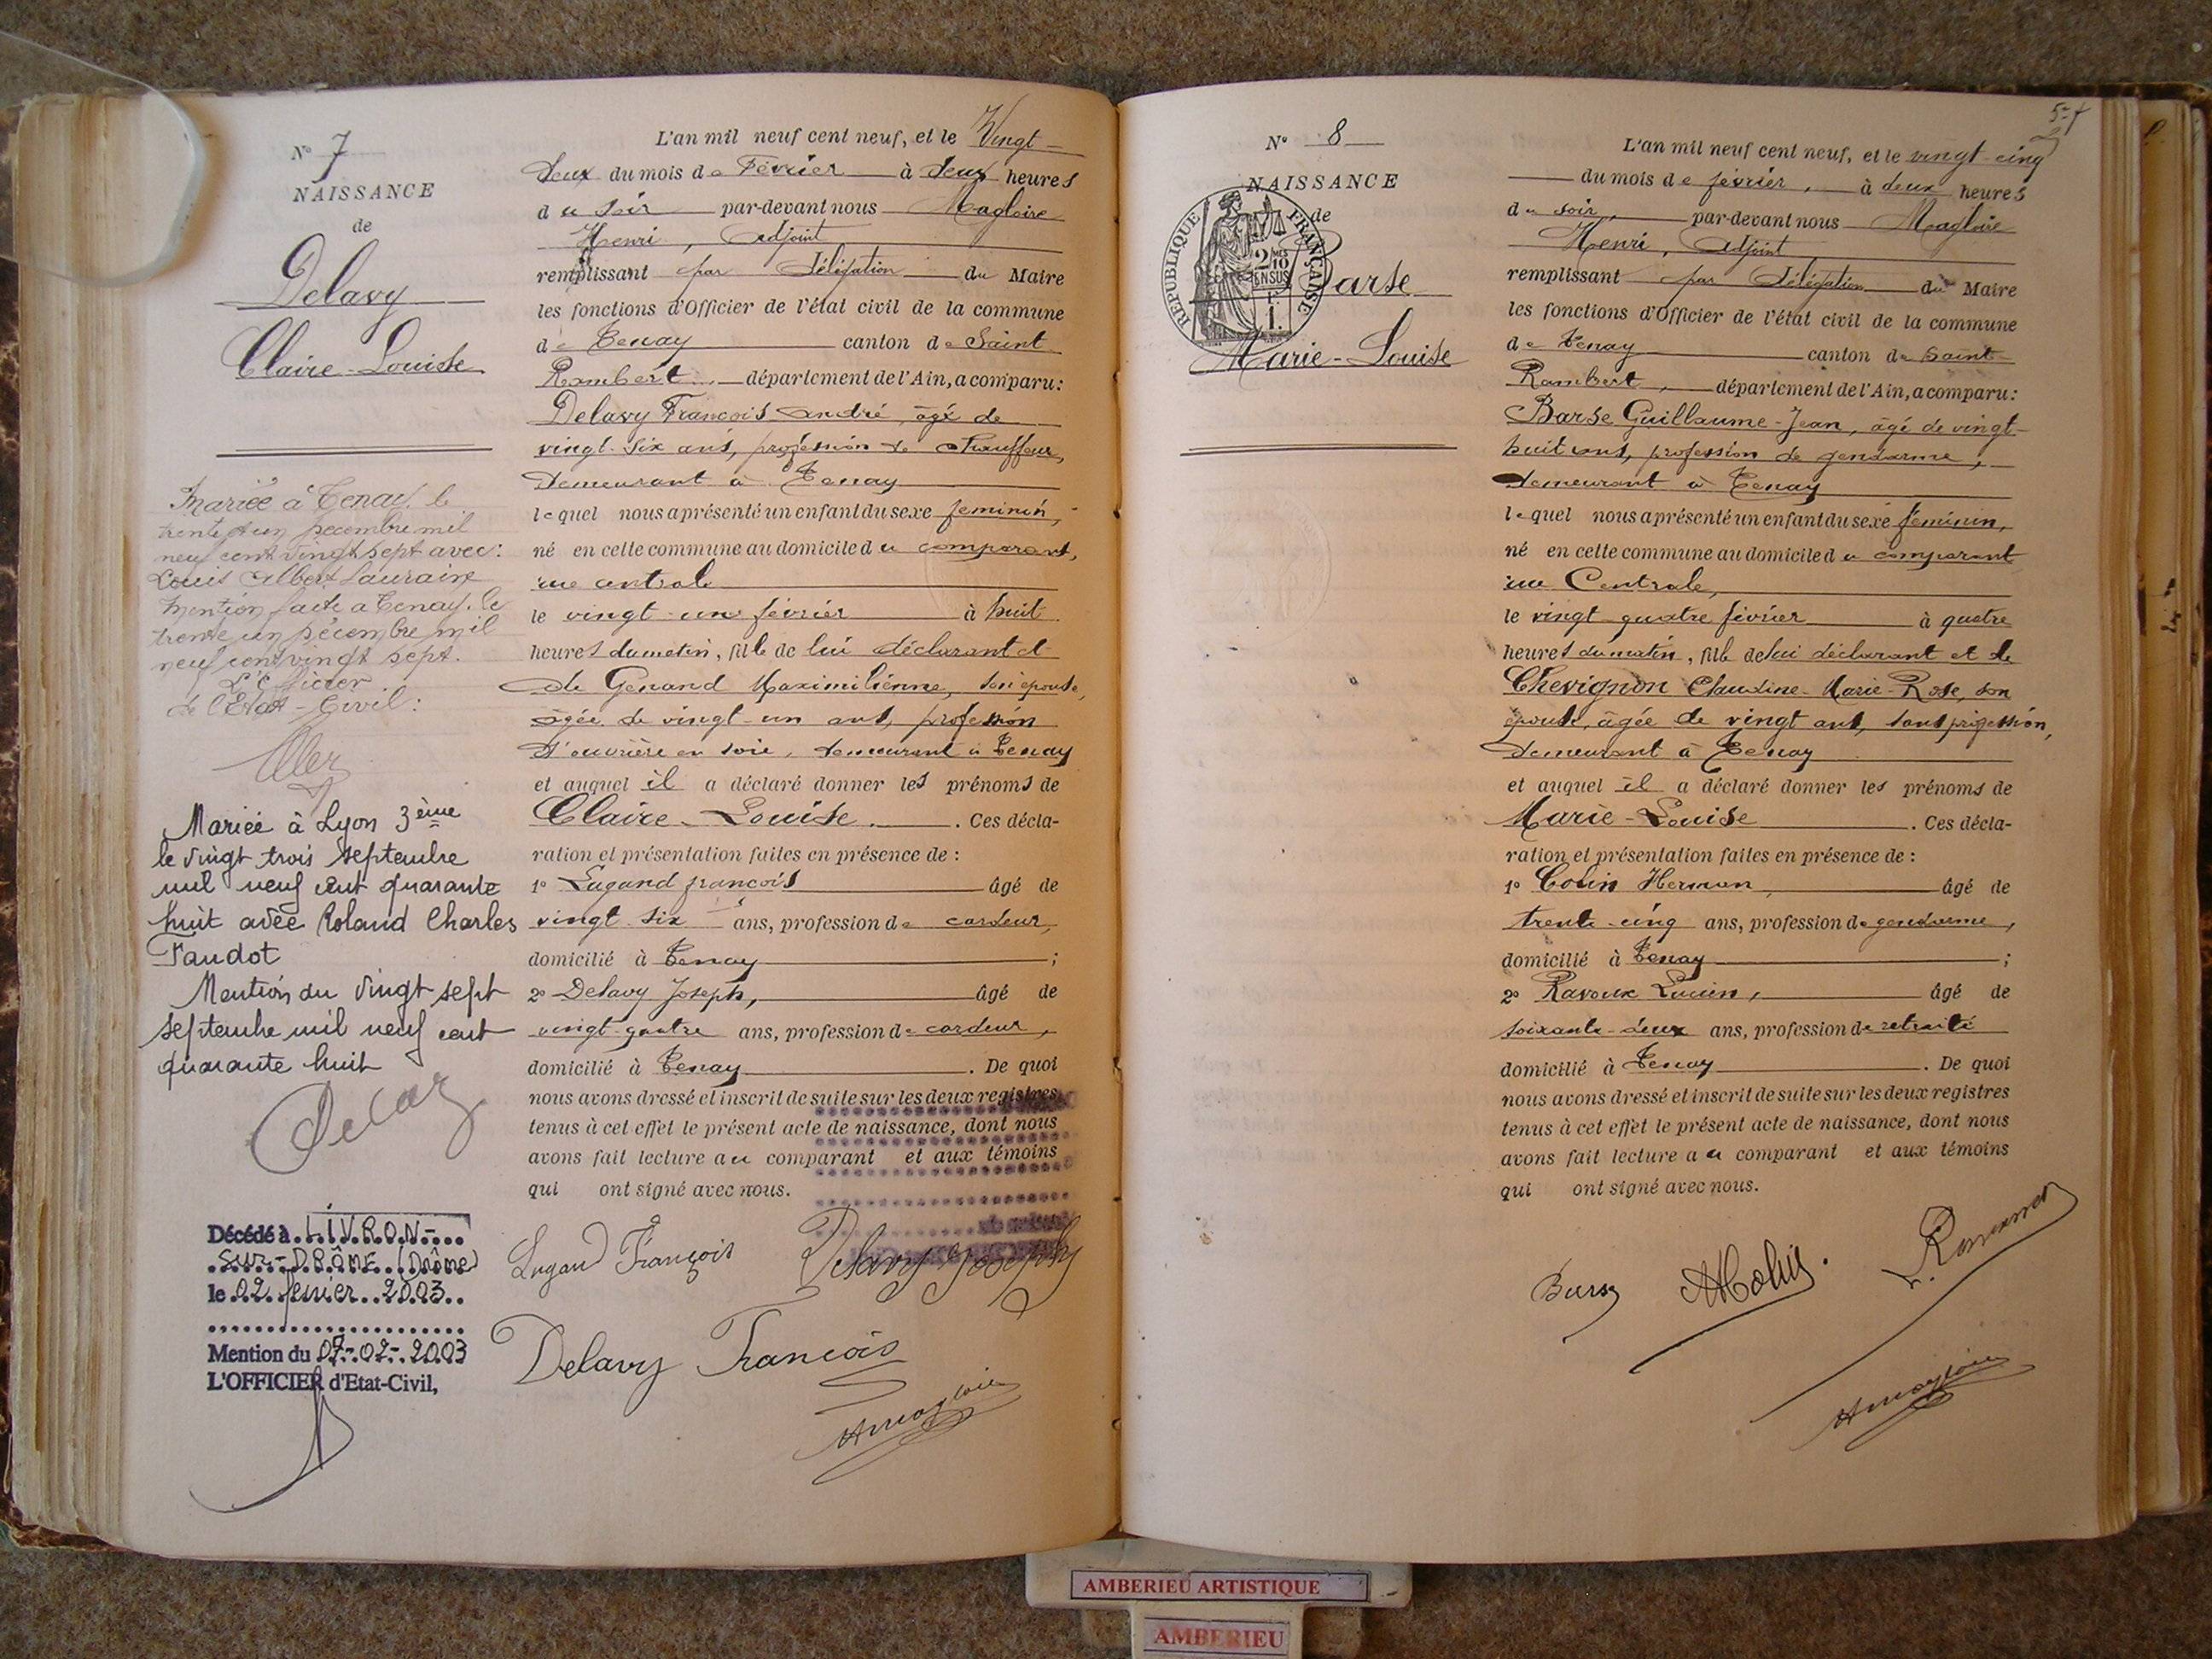 N° 7
NAISSANCE
de
Delavy
Claire-Louise
Mariée à Tenay, le
trente et un Décembre mil
neuf cent vingt sept avec:
Louis Albert Lauraire
Mention faite à Tenay, le
trente un Décembre mil
neuf cent vingt sept.
L'Officier
de l'Etat-Civil:
Mariée à Lyon 3ème
le vingt trois septembre
mil neuf cent quarante
huit avec Roland Charles
Mention du vingt sept
septembre mil neuf cent
quarante huit
Décédé à LIVRON-
SUR-DRÔME (Drôme)
le 02 février 2003
Mention du 07-02-2003
L'OFFICIER d'Etat-Civil,
L'an mil neuf cent neuf, et le Vingt-
deux du mois de Février à deux heures
du soir par-devant nous Magloire
Henri, Adjoint
remplissant par Délégation du Maire
les fonctions d'Officier de l'état civil de la commune
de Tenay canton de Saint
Rambert, département de l'Ain, a comparu:
Delavy François André, âgé de
vingt-six ans, profession de chauffeur,
demeurant à Tenay
lequel nous a présenté un enfant du sexe feminin,
né en cette commune au domicile du comparant,
rue centrale
le vingt-un février à huit
heures du matin, fille de lui déclarant et
de Genand Maximilienne, son épouse,
âgée de vingt-un ans, profession
d'ouvrière en soie, demeurant à Tenay
et auquel il a déclaré donner les prénoms de
Claire-Louise. Ces décla-
ration et présentation faites en présence de :
1° Lugand françois âgé de
vingt six ans, profession de cardeur,
domicilié à Tenay ;
2° Delavy Joseph, âgé de
vingt-quatre ans, profession de cardeur,
domicilié à Tenay. De quoi
nous avons dressé et inscrit de suite sur les deux registres
tenus à cet effet le présent acte de naissance, dont nous
avons fait lecture au comparant et aux témoins
qui ont signé avec nous.
Lugand François Delavy Joseph
Delavy François
HMagloire
57
N° 8
NAISSANCE
de
Barse
Marie-Louise
REPUBLIQUE FRANÇAISE
2/10 MES EN SUS
1 F.
L'an mil neuf cent neuf, et le vingt-cinq
du mois de février, à deux heures
du soir, par-devant nous Magloire
Henri, Adjoint
remplissant par Délégation du Maire
les fonctions d'Officier de l'état civil de la commune
de Tenay canton de Saint-
Rambert, département de l'Ain, a comparu:
Barse Guillaume-Jean, âgé de vingt-
huit ans, profession de gendarme,
demeurant à Tenay
lequel nous a présenté un enfant du sexe féminin,
né en cette commune au domicile du comparant
rue Centrale,
le vingt-quatre février à quatre
heures du matin, fille de lui déclarant et de
Chevignon Claudine-Marie-Rose, son
épouse, âgée de vingt ans, sans profession,
demeurant à Tenay
et auquel il a déclaré donner les prénoms de
Marie-Louise. Ces décla-
ration et présentation faites en présence de :
1° Colin Herman, âgé de
trente-cinq ans, profession de gendarme,
domicilié à Tenay ;
2° Ravoux Lucien, âgé de
soixante-deux ans, profession de retraité
domicilié à Tenay. De quoi
nous avons dressé et inscrit de suite sur les deux registres
tenus à cet effet le présent acte de naissance, dont nous
avons fait lecture au comparant et aux témoins
qui ont signé avec nous.
Barse
HMagloire
AMBERIEU ARTISTIQUE
AMBERIEU